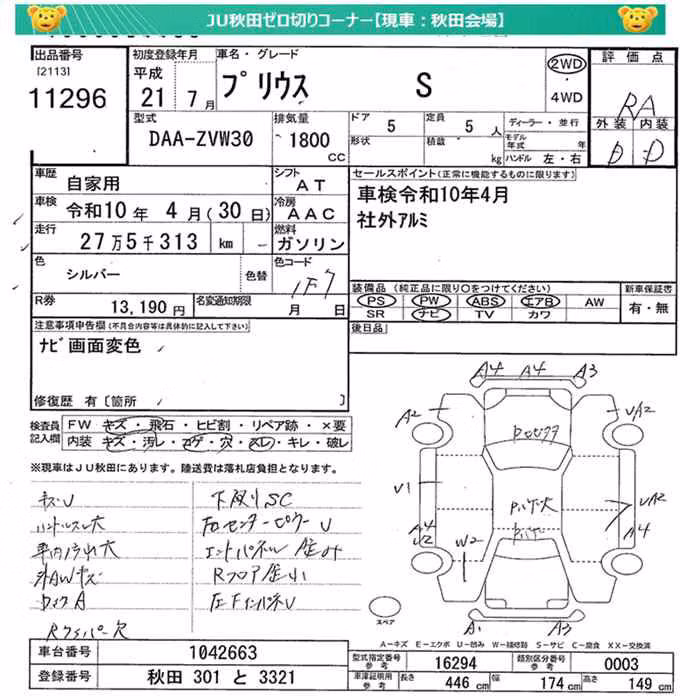 JU秋田ゼロ切りコーナー【現車：秋田会場】
出品番号
[2113]
11296
初度登録年月
平成
21 年 7 月
車名・グレード
プリウス S
2WD
4WD
評価点
RA
外装 内装
D D
型式
DAA-ZVW30
排気量
1800 CC
ドア 5
形状
定員 5 人
積載 kg
ディーラー・並行
モデル年式 年
ハンドル 左・右
車歴 自家用
シフト AT
車検 令和10年 4月(30日)
冷房 AAC
走行 27万5千313 km
燃料 ガソリン
色 シルバー 色替
色コード 1F7
R券 13,190円
名変通知期限 月 日
セールスポイント(正常に機能するものに限ります)
車検令和10年4月
社外アルミ
装備品（純正品に限り○をつけてください）
PS PW ABS エアB AW
SR ナビ TV カワ
新車保証書
有・無
後日品
注意事項申告欄(不具合内容等は具体的に記入して下さい)
ナビ画面変色
修復歴 有〔箇所 〕
検査員記入欄
FW キズ・飛石・ヒビ割・リペア跡・×要
内装 キズ・汚レ・コゲ・穴・スレ・キレ・破レ
※現車はJU秋田にあります。陸送費は落札店負担となります。
キズU
ハンドルスレ大
車内汚れ大
外AWキズ
タイヤA
Rワイパー欠
下廻りSC
右センターピラーU
Rフロア歪小
A4 A4 A3
A2
UA2
V1
UA2
A4
U2
A4
W2
A1 A3
スペア
A－キズ E－エクボ U－凹み W－補修跡 S－サビ C－腐食 XX－交換済
車台番号 1042663
登録番号 秋田 301 と 3321
型式指定番号 参考 16294
類別区分番号 参考 0003
車庫証明用 参考 長さ 446 cm 幅 174 cm 高さ 149 cm